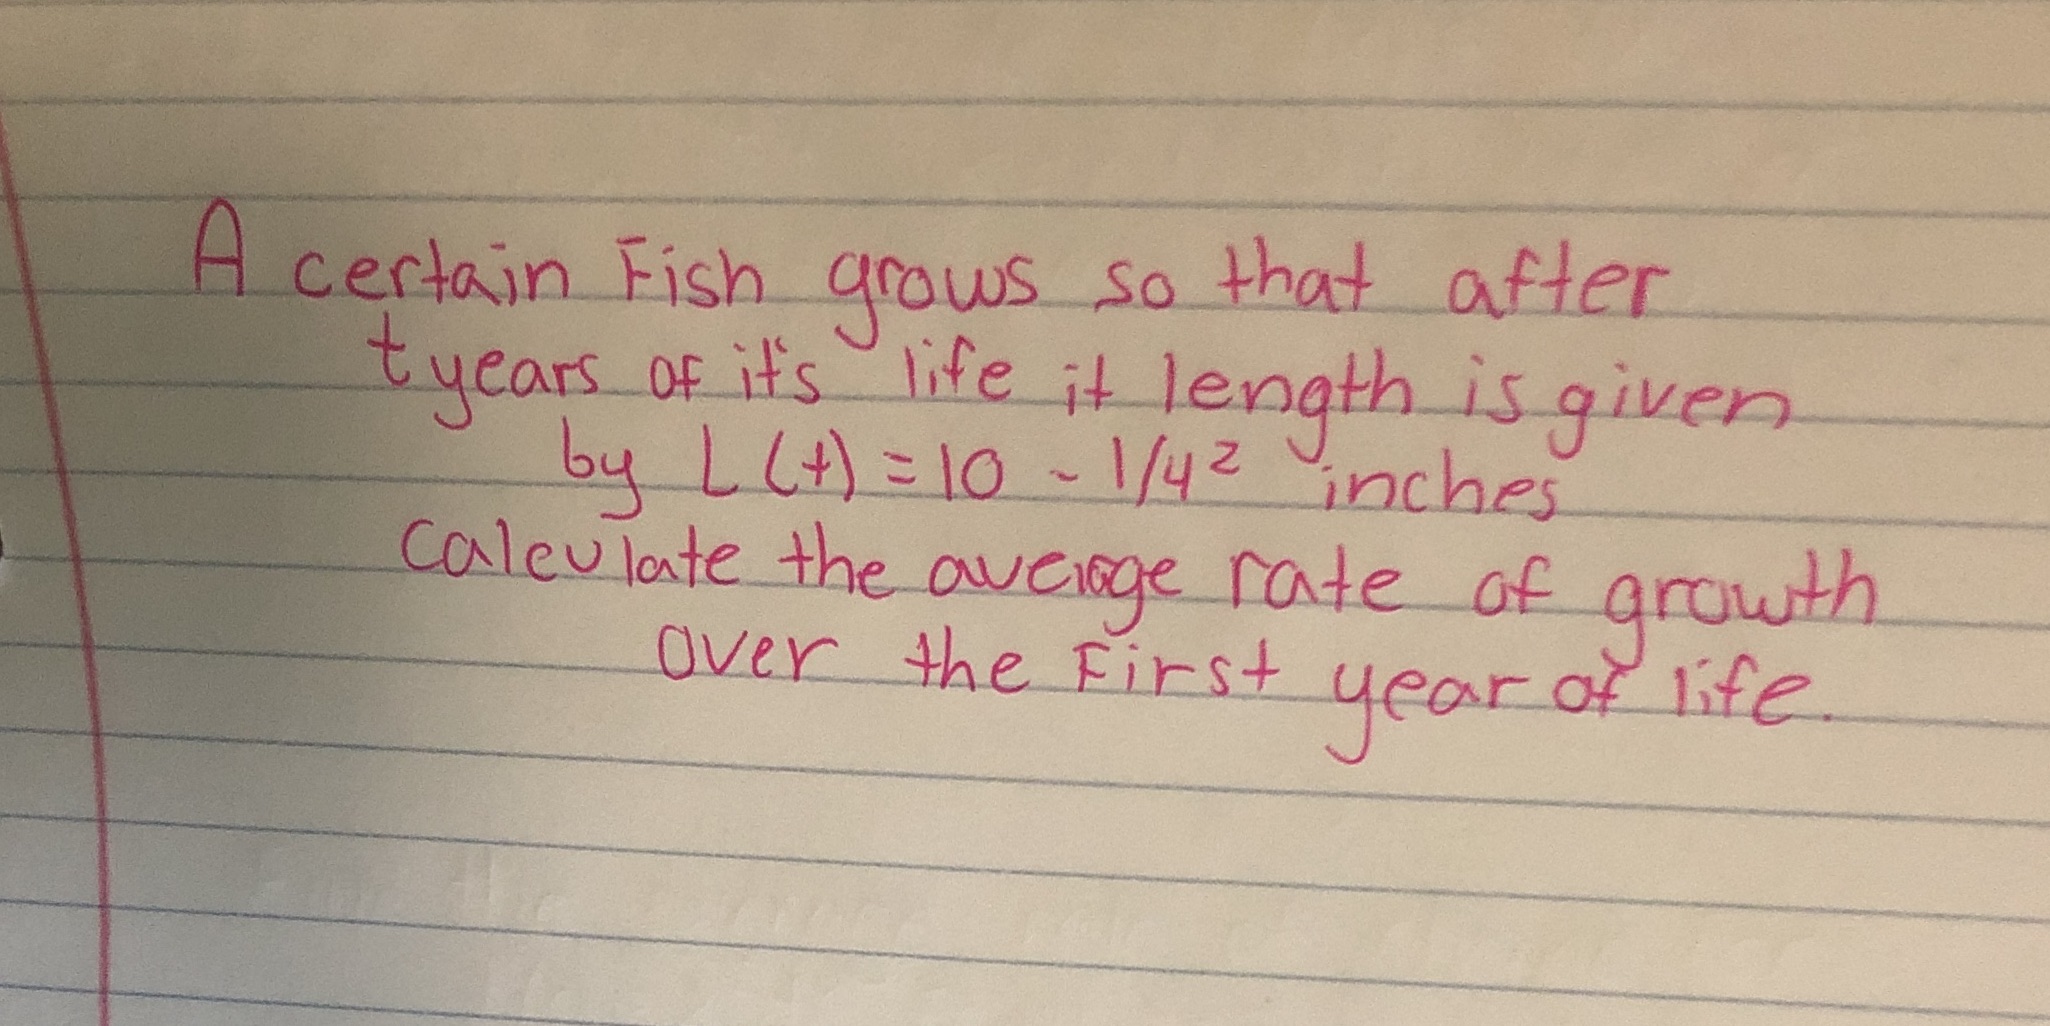 A certain Fish grows so that after
t years of it's life it length is given
by L(t) = 10 - 1/4² inches
Calculate the average rate of growth
over the First year of life.